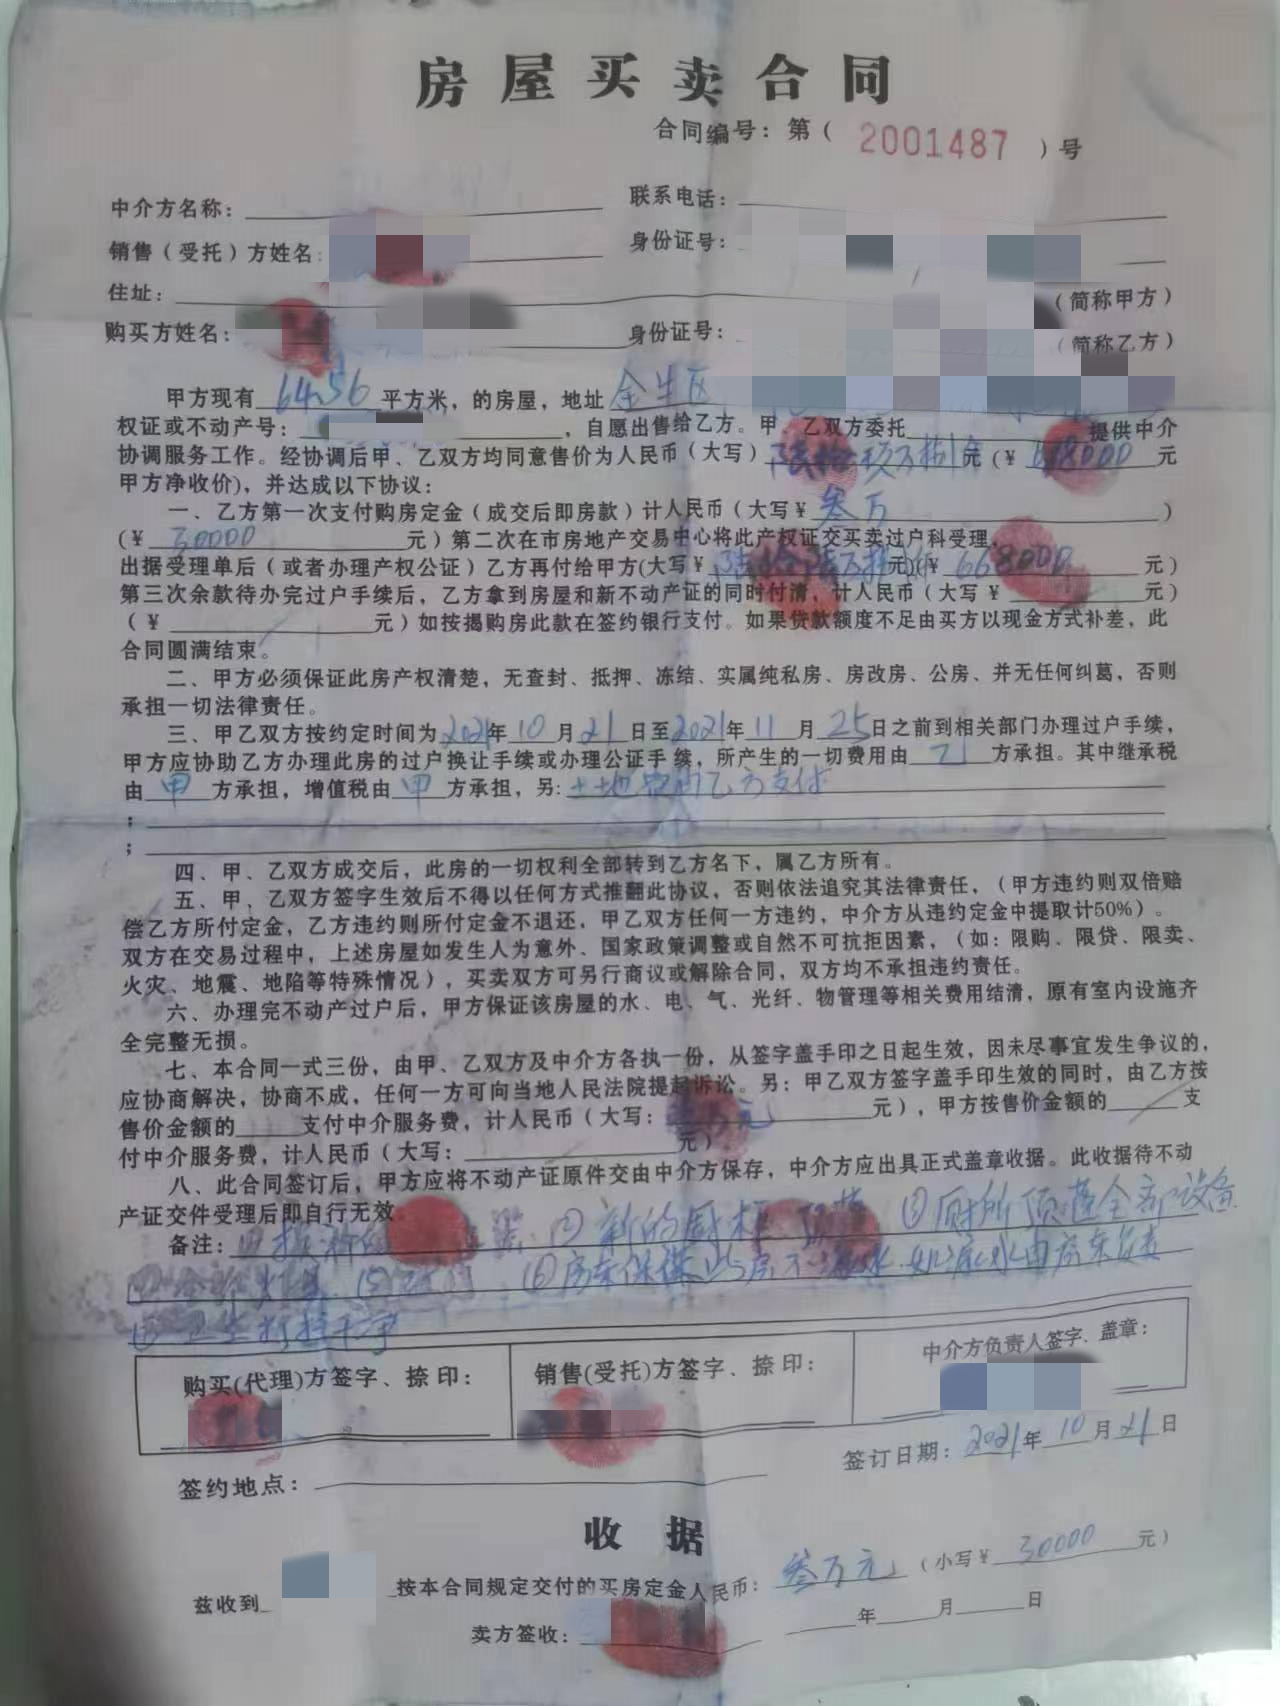 房屋买卖合同
合同编号：第（ 2001487 ）号
中介方名称： 联系电话：
销售（受托）方姓名： 身份证号：
住址： （简称甲方）
购买方姓名： 身份证号： （简称乙方）
甲方现有 64.56 平方米，的房屋，地址 金牛区
权证或不动产号： ，自愿出售给乙方。甲、乙双方委托 提供中介
协调服务工作。经协调后甲、乙双方均同意售价为人民币（大写） 元（￥ 元
甲方净收价)，并达成以下协议：
一、乙方第一次支付购房定金（成交后即房款）计人民币（大写￥ 叁万 ）
（￥ 30000 元）第二次在市房地产交易中心将此产权证交买卖过户科受理，
出据受理单后（或者办理产权公证）乙方再付给甲方(大写￥ 元)(￥ 668000 元)
第三次余款待办完过户手续后，乙方拿到房屋和新不动产证的同时付清，计人民币（大写￥ 元）
（￥ 元）如按揭购房此款在签约银行支付。如果贷款额度不足由买方以现金方式补差，此
合同圆满结束。
二、甲方必须保证此房产权清楚，无查封、抵押、冻结、实属纯私房、房改房、公房、并无任何纠葛，否则
承担一切法律责任。
三、甲乙双方按约定时间为2021年10月21日至2021年11月25日之前到相关部门办理过户手续，
甲方应协助乙方办理此房的过户换让手续或办理公证手续，所产生的一切费用由 乙 方承担。其中继承税
由 甲 方承担，增值税由 甲 方承担，另: 土地 乙方支付
；
；
四、甲、乙双方成交后，此房的一切权利全部转到乙方名下，属乙方所有。
五、甲、乙双方签字生效后不得以任何方式推翻此协议，否则依法追究其法律责任，（甲方违约则双倍赔
偿乙方所付定金，乙方违约则所付定金不退还，甲乙双方任何一方违约，中介方从违约定金中提取计50%）。
双方在交易过程中，上述房屋如发生人为意外、国家政策调整或自然不可抗拒因素，（如：限购、限贷、限卖、
火灾、地震、地陷等特殊情况），买卖双方可另行商议或解除合同，双方均不承担违约责任。
六、办理完不动产过户后，甲方保证该房屋的水、电、气、光纤、物管理等相关费用结清，原有室内设施齐
全完整无损。
七、本合同一式三份，由甲、乙双方及中介方各执一份，从签字盖手印之日起生效，因未尽事宜发生争议的，
应协商解决，协商不成，任何一方可向当地人民法院提起诉讼。另：甲乙双方签字盖手印生效的同时，由乙方按
售价金额的 支付中介服务费，计人民币（大写： 元 元），甲方按售价金额的 支
付中介服务费，计人民币（大写： 元）
八、此合同签订后，甲方应将不动产证原件交由中介方保存，中介方应出具正式盖章收据。此收据待不动
产证交件受理后即自行无效。
备注： ② 新的厨柜 ③ 厕所顶 全部设备
⑤ ⑥ 房东保证此房不漏水，如漏水由房东负责
卫生打扫干净
购买(代理)方签字、捺印：
销售(受托)方签字、捺印：
中介方负责人签字、盖章：
签订日期：2021年10月21日
签约地点：
收据
兹收到 按本合同规定交付的买房定金人民币： 叁万元 （小写￥ 30000 元）
卖方签收： 年 月 日